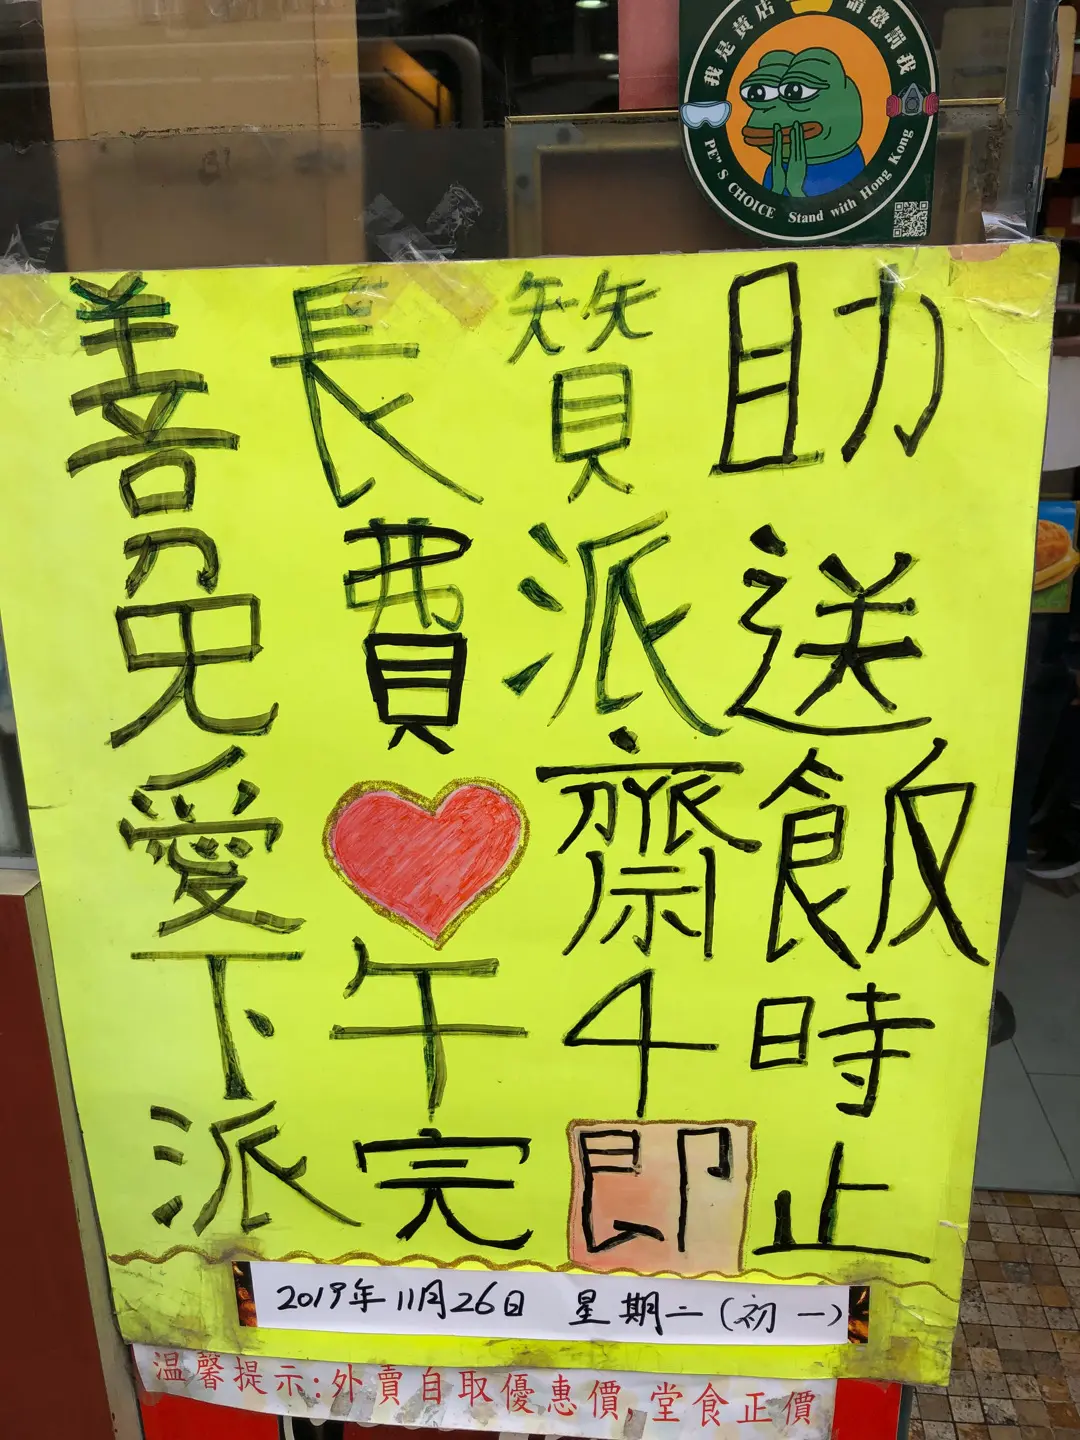 我是黃店 請懲罰我
PE"S CHOICE Stand with Hong Kong
善長贊助
免費派送
愛齋飯
下午4時
派完即止
2019年11月26日 星期二(初一)
溫馨提示:外賣自取優惠價,堂食正價